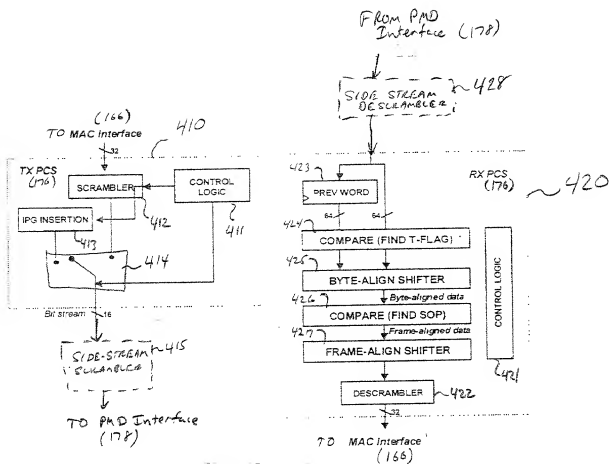 (166)
TO MAC Interface
410
32
TX PCS
(176)
SCRAMBLER
CONTROL
LOGIC
412
411
IPG INSERTION
413
414
Bit stream
16
SIDE-STREAM
SCRAMBLER
415
TO PMD Interface
(178)
FROM PMD
Interface (178)
SIDE STREAM
DESCRAMBLER
428
423
RX PCS
(176)
420
PREV WORD
64
64
424
COMPARE (FIND T-FLAG)
425
BYTE-ALIGN SHIFTER
426
Byte-aligned data
COMPARE (FIND SOP)
427
Frame-aligned data
FRAME-ALIGN SHIFTER
CONTROL LOGIC
421
DESCRAMBLER
422
32
TO MAC Interface
(166)